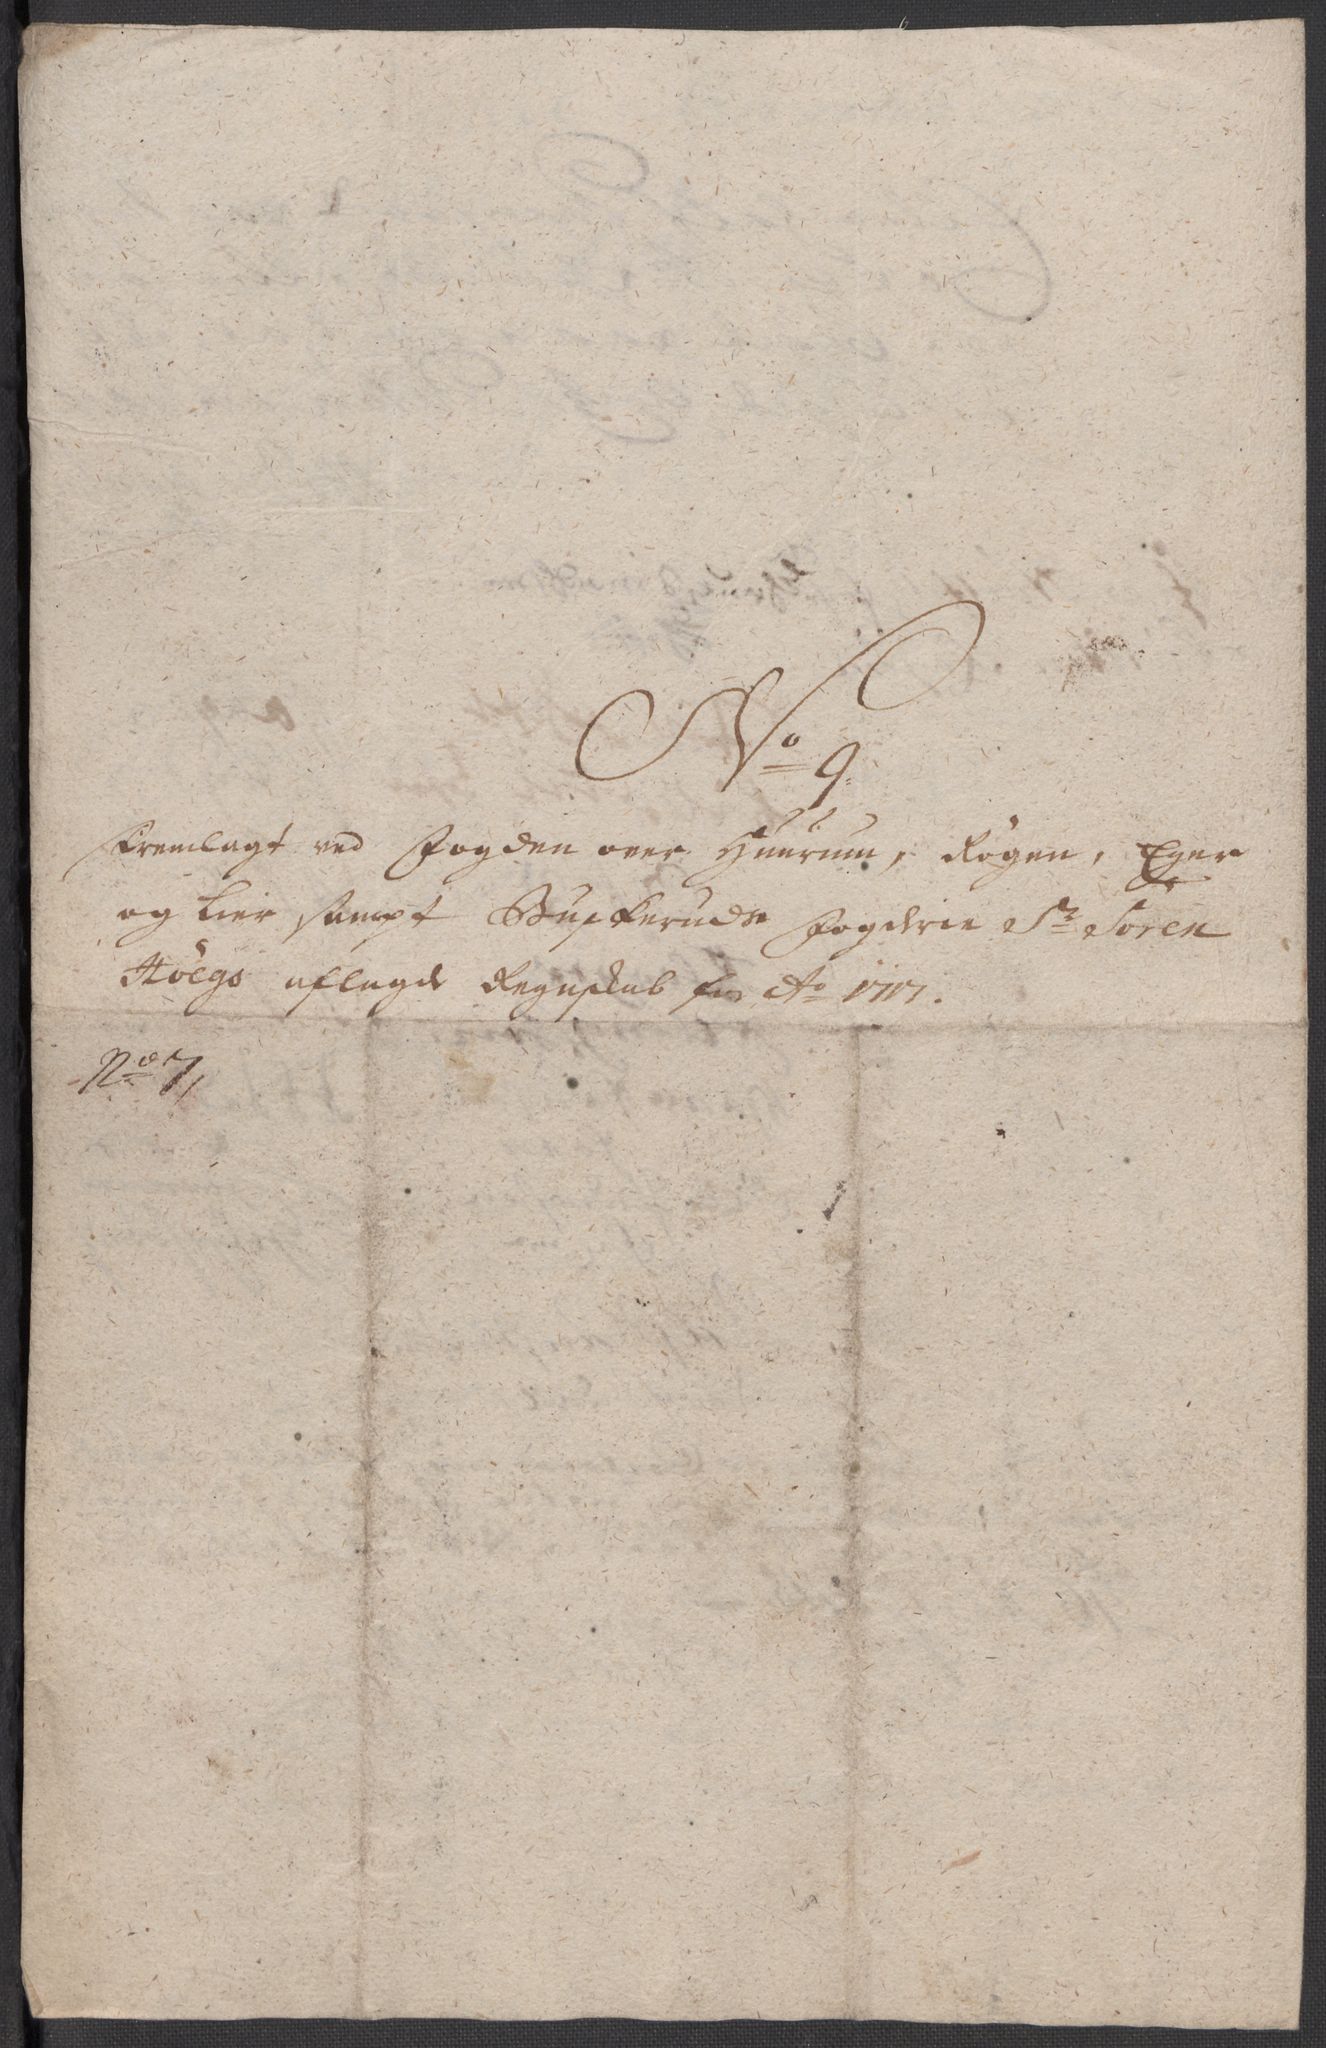 No 9.
Fremlagt ved Fogden over Huurum, Røgen, Eger
og Lier sampt Buskeruds Fogderie Sr Søren
Høegs aflagde Regnskab for Ao 1717.
No 7,